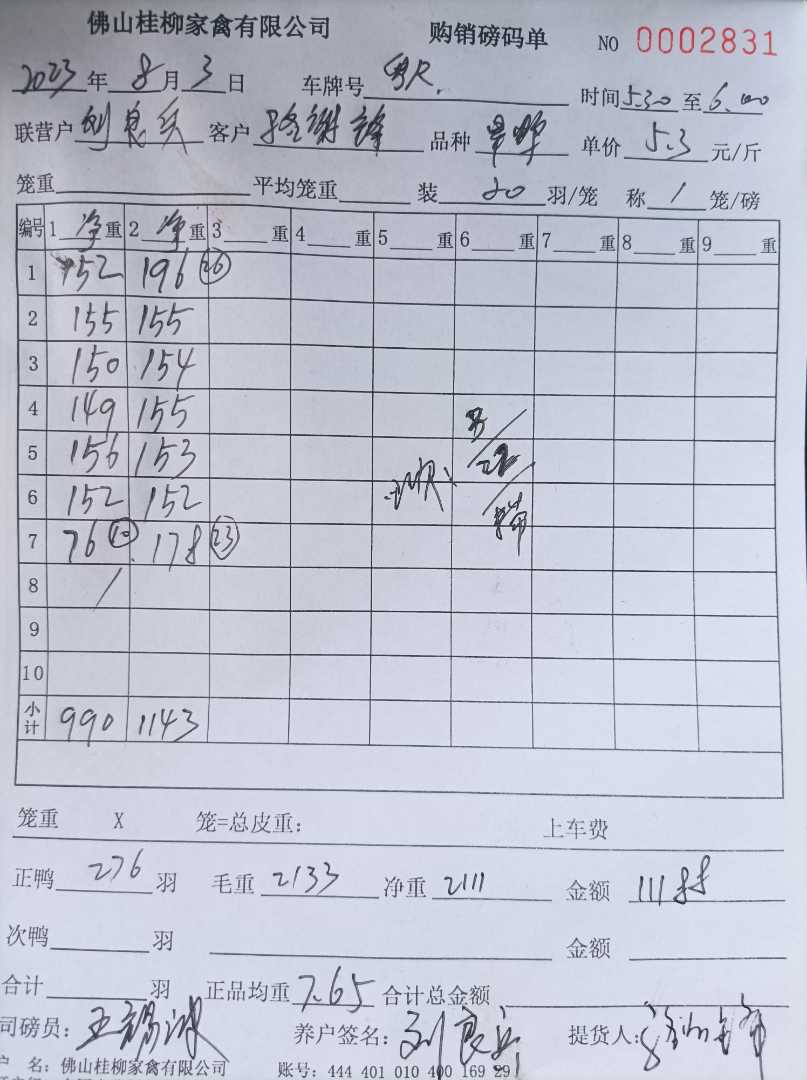 佛山桂柳家禽有限公司 购销磅码单 NO 0002831
2023年8月3日 车牌号 时间5.30至6.00
联营户 刘良兵 客户 品种 单价5.3元/斤
笼重 平均笼重 装20羽/笼 称1笼/磅
编号 1净重 2净重 3重 4重 5重 6重 7重 8重 9重
1 152 196 (26)
2 155 155
3 150 154
4 149 155
5 156 153
6 152 152
7 76 (10) 178 (23)
8 /
9
10
小计 990 1143
笼重 X 笼=总皮重: 上车费
正鸭276羽 毛重2133 净重2111 金额11188
次鸭 羽 金额
合计 羽 正品均重7.65 合计总金额
司磅员: 养户签名: 刘良兵 提货人:
户 名: 佛山桂柳家禽有限公司 账号: 444 401 010 400 169 29